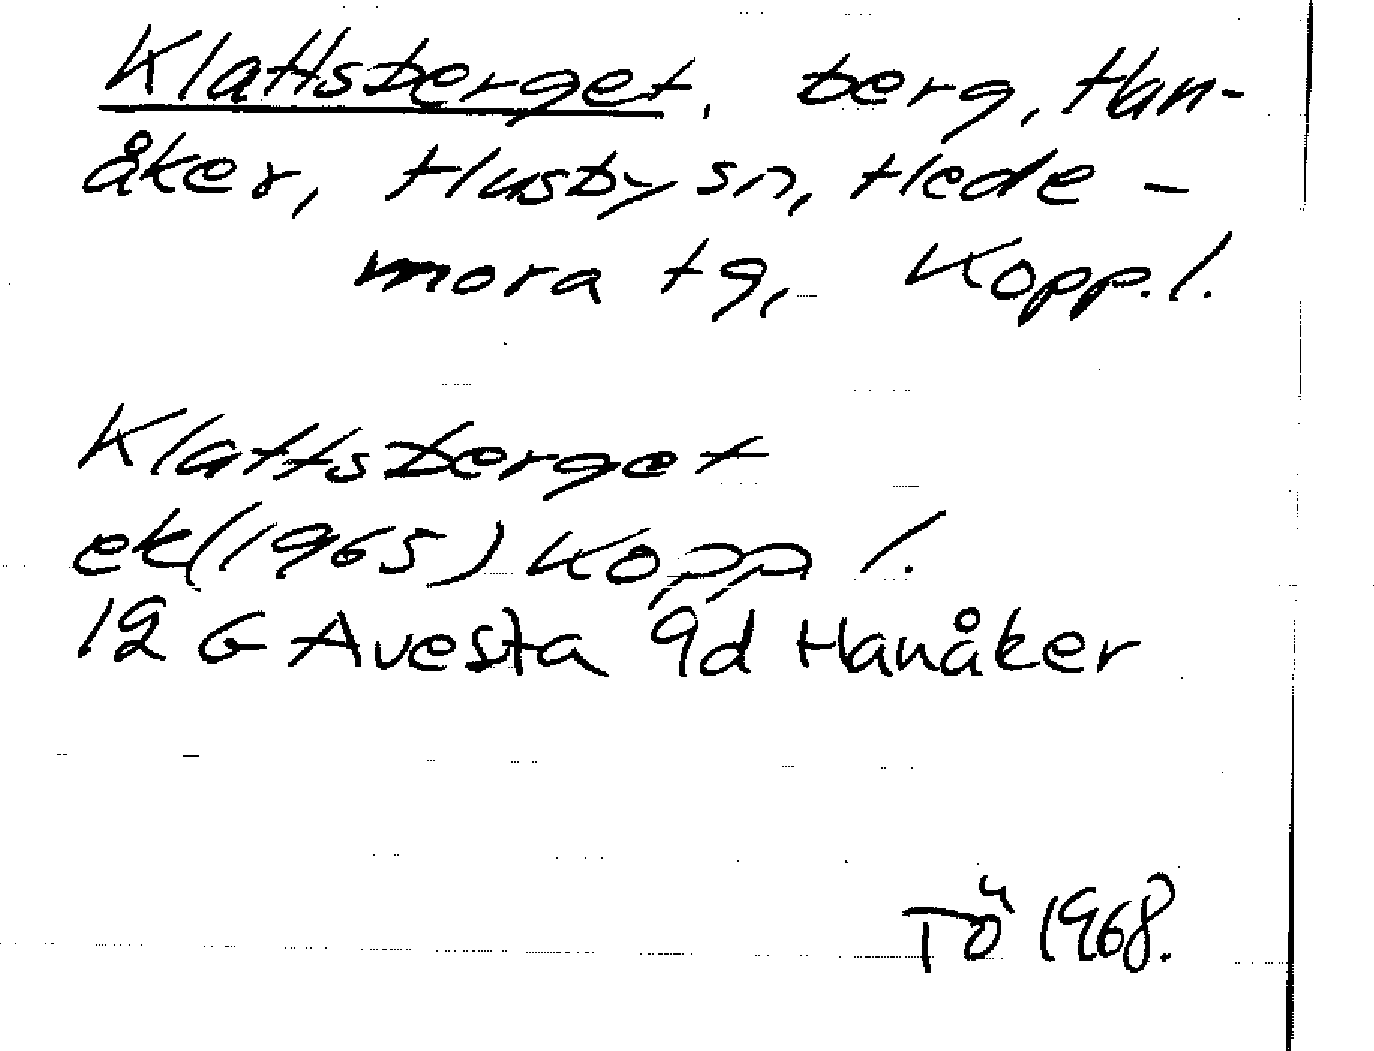 Klattsberget, berg, Han-
åker, Husby sn, Hede-
mora tg, Kopp. l.
Klattsberget
ek (1965) Kopp l.
12 G Avesta 9d Hanåker
TÖ 1968.